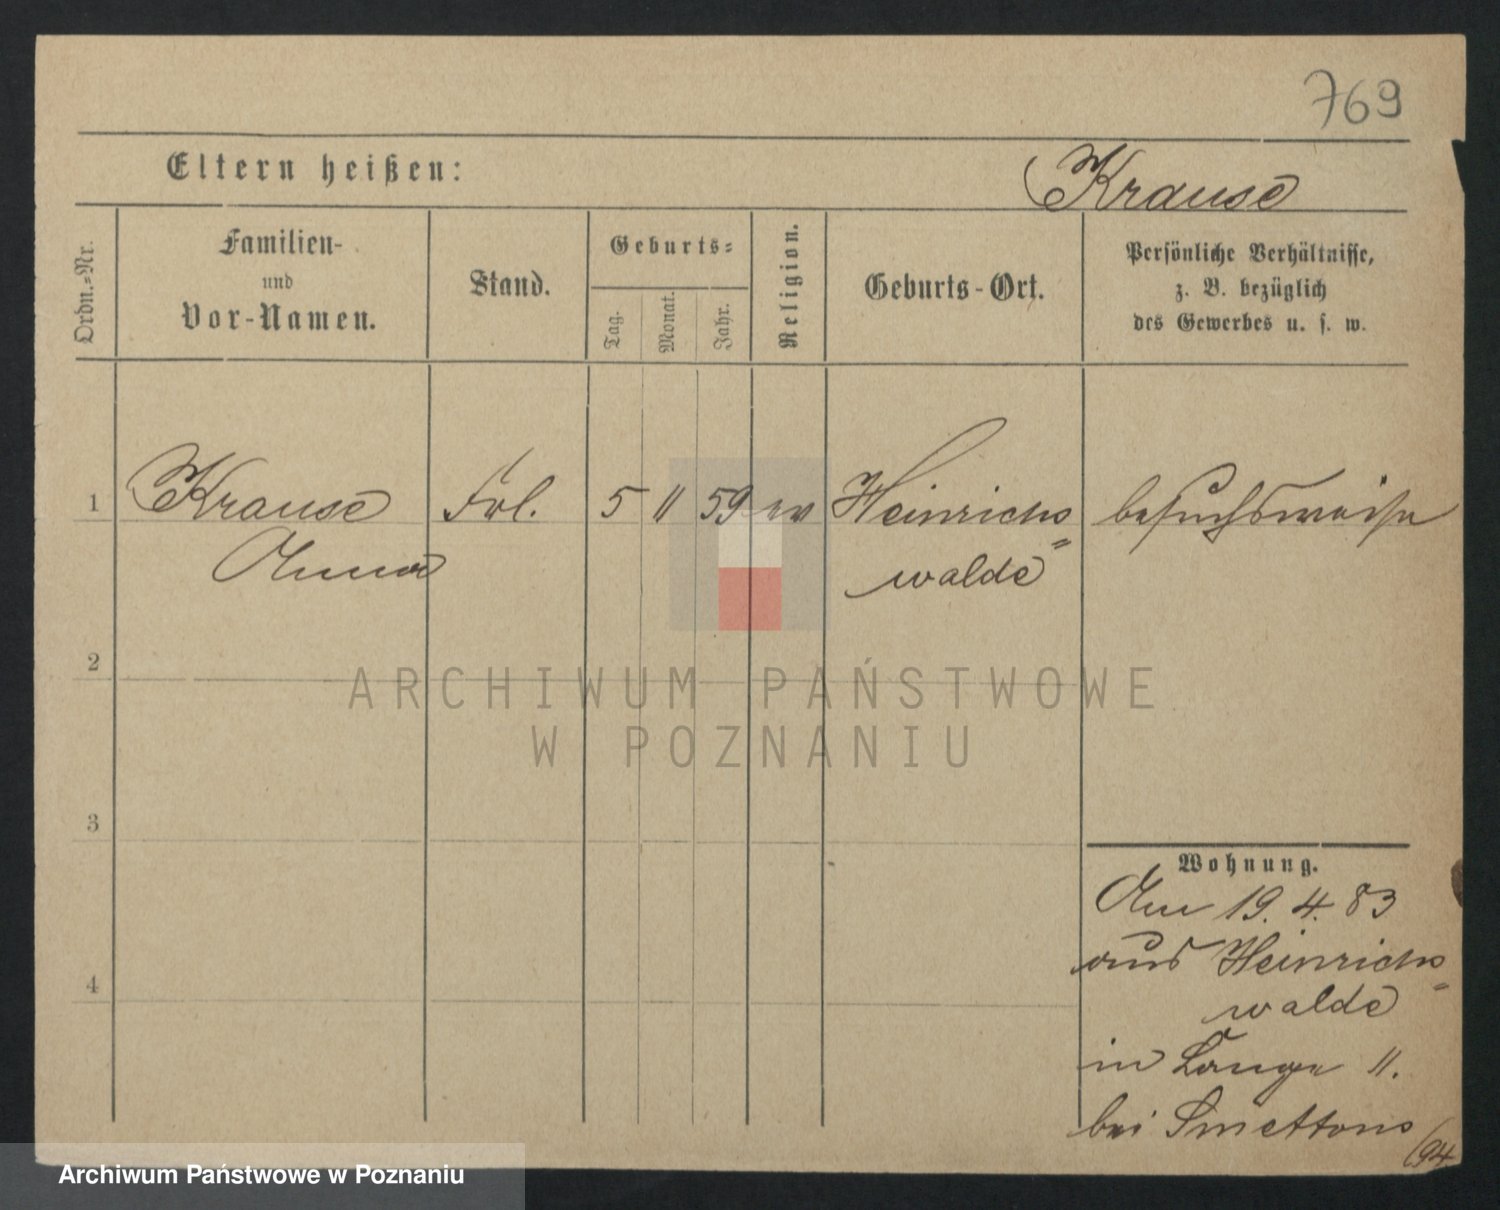 769
Eltern heißen:
Krause
Ordn.-Nr.
Familien-
und
Vor-Namen.
Stand.
Geburts-
Tag.
Monat.
Jahr.
Religion.
Geburts-Ort.
Persönliche Verhältnisse,
z. B. bezüglich
des Gewerbes u. s. w.
1 Krause Frl. 5 11 59 ev Heinrichs= besuchsweise
Anna walde
2
ARCHIWUM PAŃSTWOWE
W POZNANIU
3
Wohnung.
Am 19. 4. 83
aus Heinrichs=
walde
4
in Lange 11.
bei
Archiwum Państwowe w Poznaniu